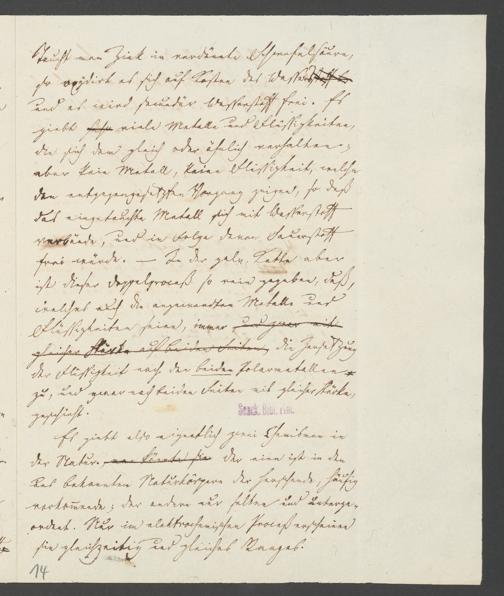 Taucht man Zink in verdünnte Schwefelsäure,
so oxydirt es sich auf Kosten des Wassers
und es wird sekundär Wasserstoff frei. Es
giebt sehr viele Metalle und Flüssigkeiten,
die sich dem gleich oder ähnlich verhalten;
aber kein Metall, keine Flüssigkeit, welche
den entgegengesetzten Vorgang zeigen, so daß
das eingetauchte Metall sich mit Wasserstoff
verbände, und in Folge dessen Sauerstoff
frei würde. — In der galv. Kette aber
ist dieser Doppelproceß so rein gegeben, daß,
welches auch die angewandten Metalle und
Flüssigkeiten seien, immer und zwar mit
gleicher Stärke auf beiden Seiten, die Zersetzung
der Flüssigkeit nach den beiden Polarmetallen
zu, und zwar nach beiden Seiten mit gleicher Stärke,
geschieht.
Es giebt also eigentlich zwei Chemismen in
der Natur, der eine ist in den
uns bekannten Naturkörpern der herrschende, häufig
vorkommende; der andere nur selten und unterge-
ordnet. Nur im elektrochemischen Proceß erscheinen
sie gleichzeitig und gleiches Ranges.
14